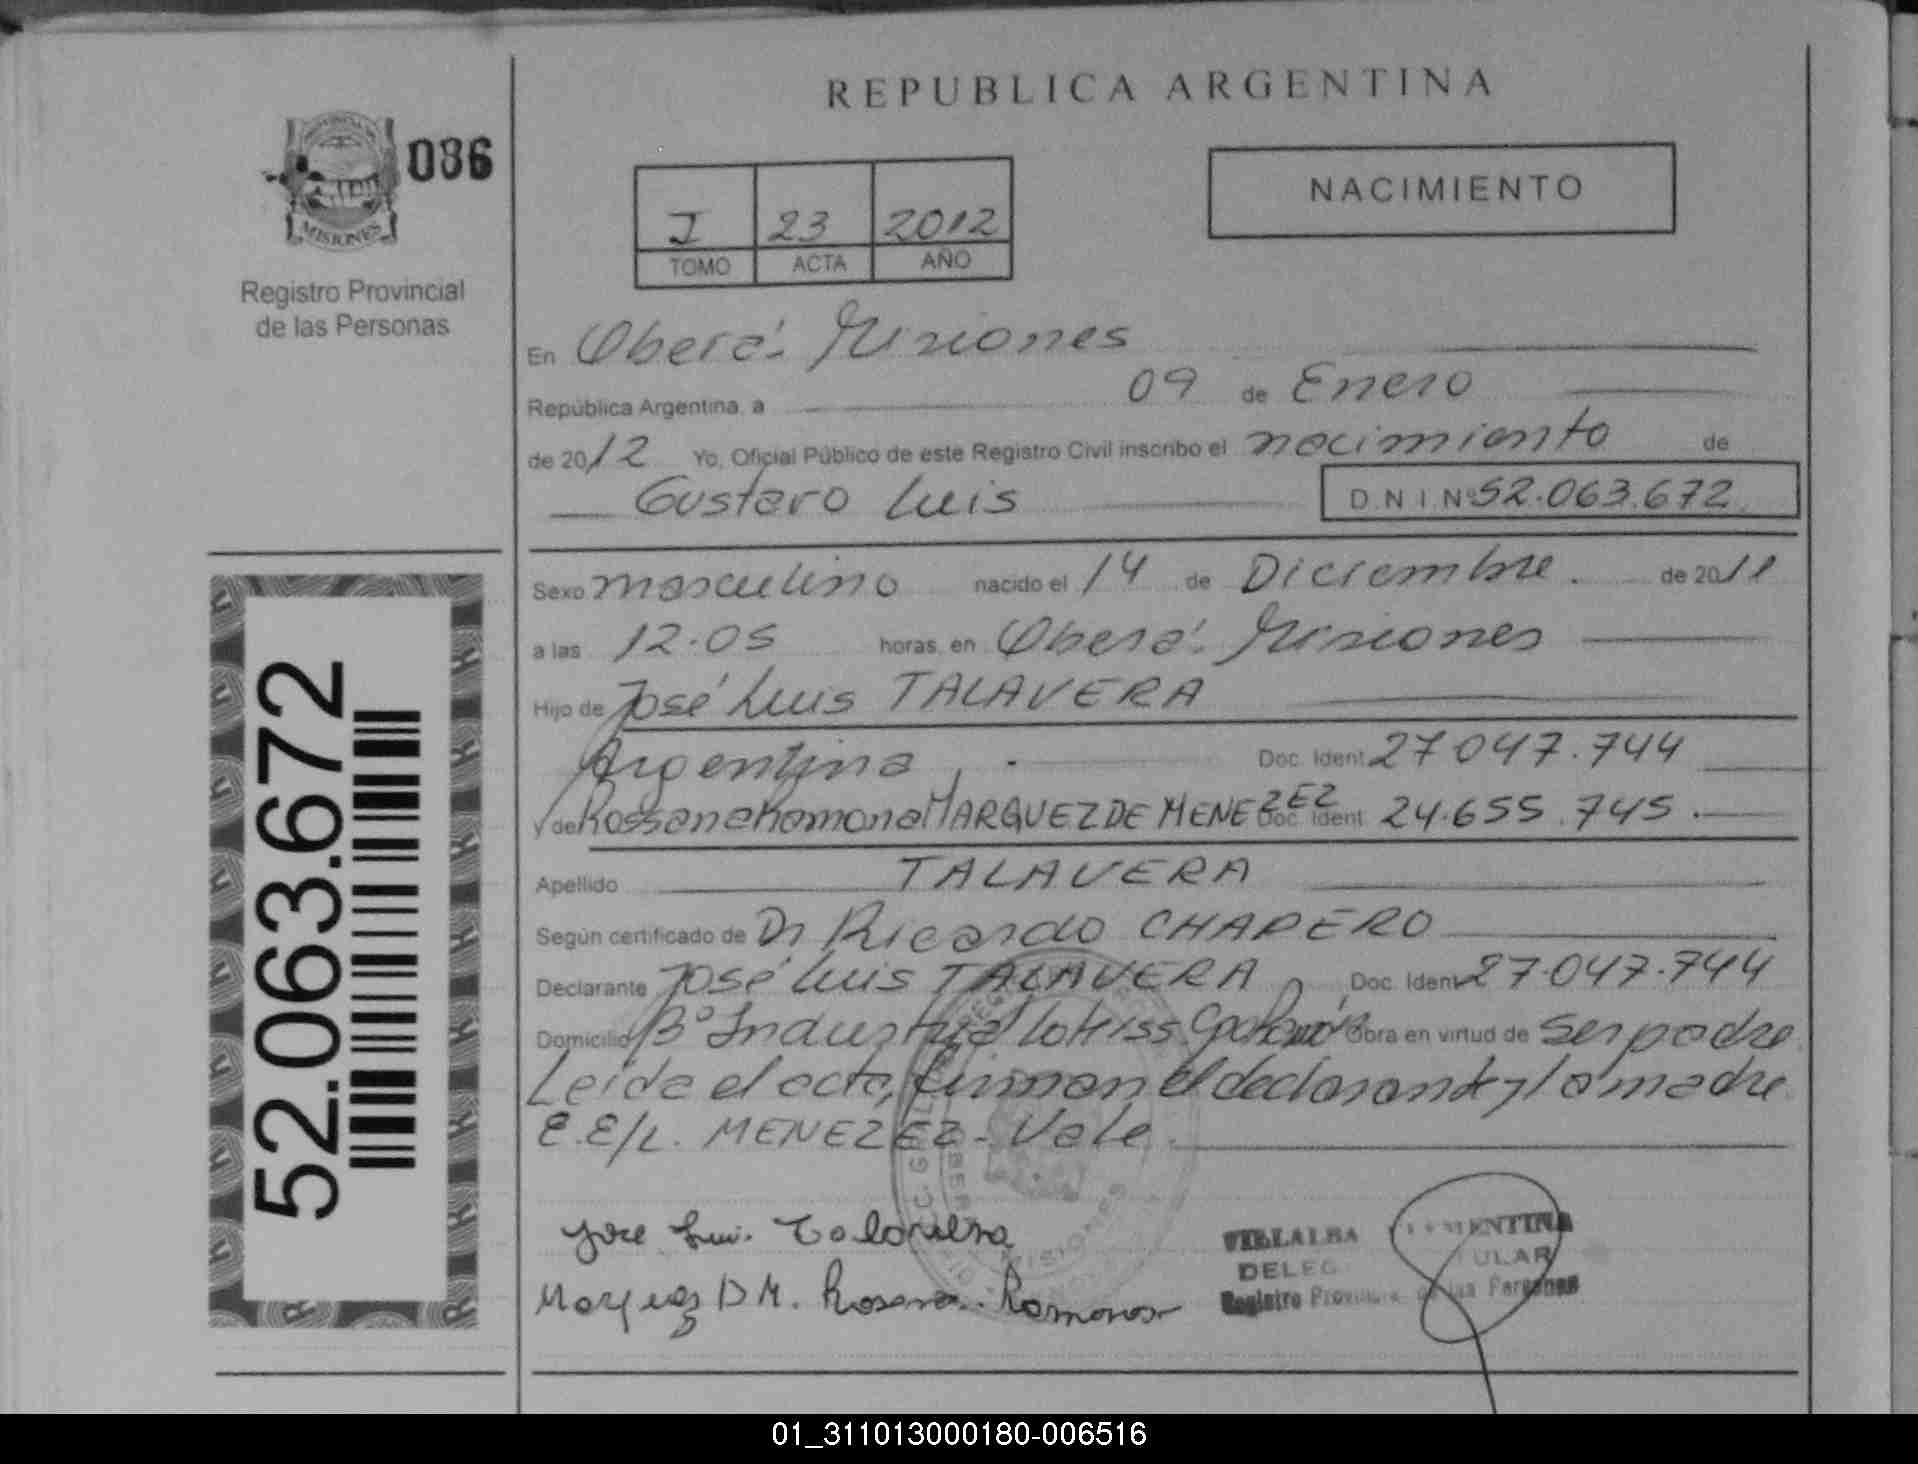 REPUBLICA ARGENTINA
086
MISIONES
Registro Provincial
de las Personas
I 23 2012
TOMO ACTA AÑO
NACIMIENTO
En Oberá. Misiones
República Argentina, a 09 de Enero
de 2012 Yo, Oficial Público de este Registro Civil inscribo el nacimiento de
Gustavo Luis D.N.I. Nº 52.063.672
Sexo masculino nacido el 14 de Diciembre. de 2011
a las 12.05 horas, en Oberá. Misiones
Hijo de José Luis TALAVERA
Argentina Doc. Ident. 27.047.744
y de Rossana Ramona MARQUEZ DE MENEZEZ Doc. Ident. 24.655.745.
Apellido TALAVERA
Según certificado de Dr Ricardo CHAPERO
Declarante José Luis TALAVERA Doc. Ident. 27.047.744
Domicilio Bº Industrial Obra en virtud de ser padre
Leída el acta, firman el declarante y la madre
E.E/L. MENEZEZ - Vale.
Jose Luis Talavera
Marquez D M. Rosana Ramona
VILLALBA CLEMENTINA
DELEG TULAR
Registro Provincial de las Personas
52.063.672
01_311013000180-006516